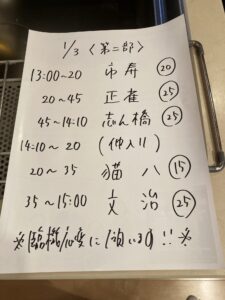 1/3 〈第二部〉
13:00~20 市寿 20
20~45 正雀 25
45~14:10 志ん橋 25
14:10~20 (仲入り)
20~35 猫八 15
35~15:00 文治 25
※臨機応変に !!※